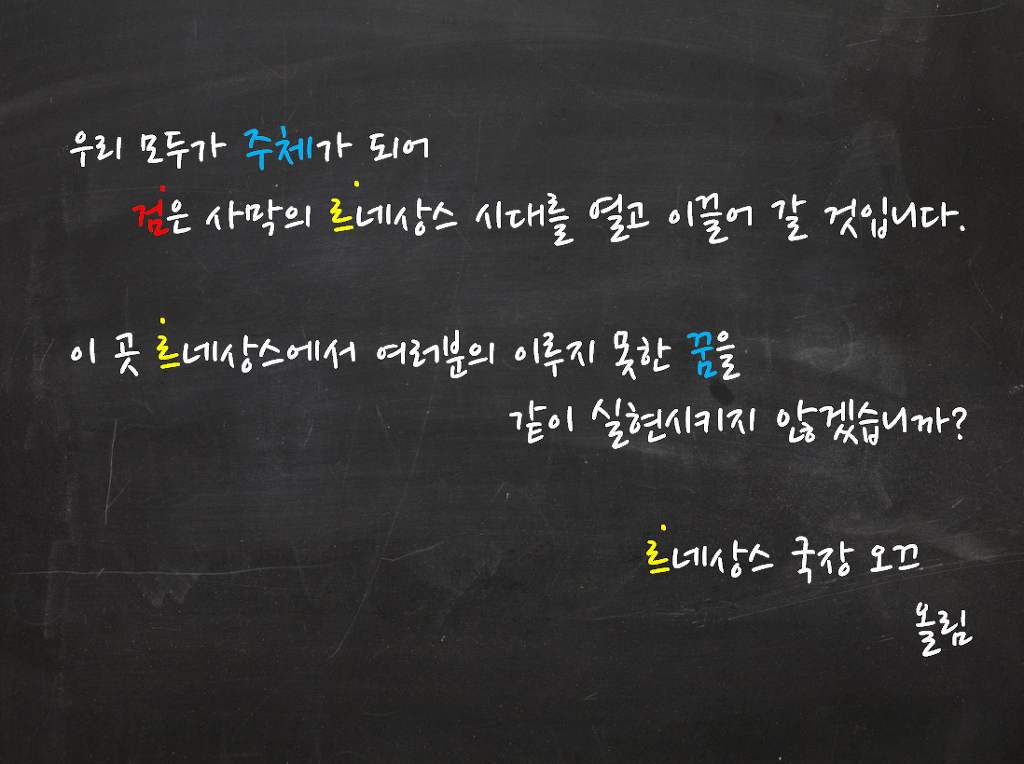 우리 모두가 주체가 되어
검은 사막의 르네상스 시대를 열고 이끌어 갈 것입니다.
이 곳 르네상스에서 여러분의 이루지 못한 꿈을
같이 실현시키지 않겠습니까?
르네상스 국장 오끄
올림